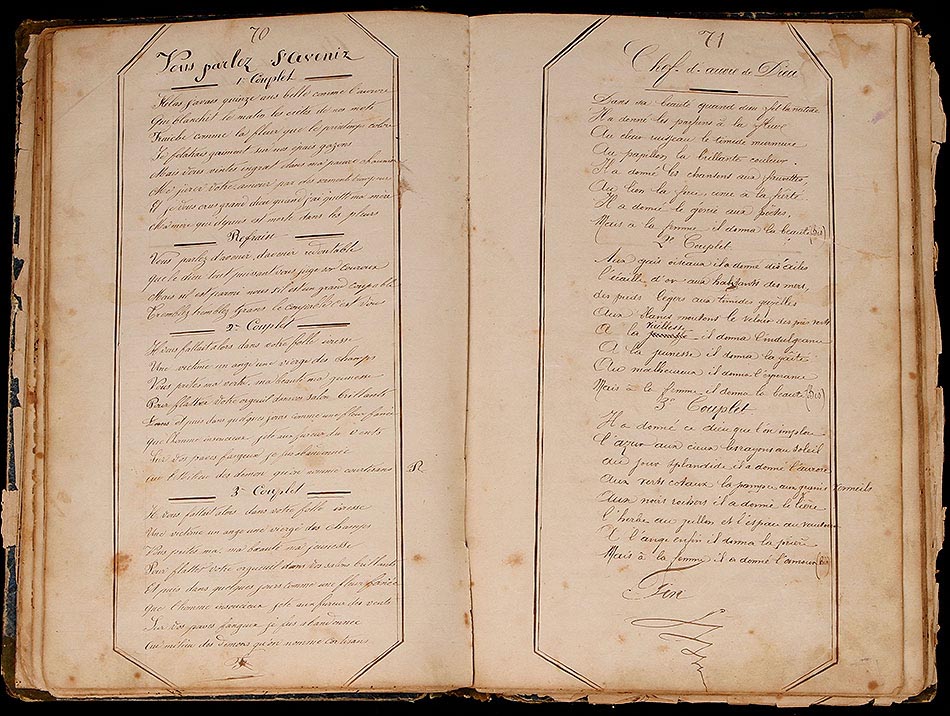 70
Vous parlez d'Avenir
1r Couplet
Helas j'avais quinze ans belle comme l'aurore
Que blanchit le matin les crêtes de nos mots
Fraiche comme la fleur que le printemps
Je folatrais gaiment sur nos épais gazons
Mais vous vintes ingrat dans ma pauvre chaumier
Ma jurer votre amour par des serment
Et je vous crus grand dieu quand j'ai quitté ma mère
Ma mère qui depuis est morte dans les pleurs
Refrain
Vous parlez d'avenir d'avenir redoutable
Que le dieu tout puissant vous juge son couroux
Mais s'il est parmi nous s'il est un grand coupable
Tremblez tremblez Grans le coupable s'est vous
2e Couplet
Il vous fallait alors dans votre folle ivresse
Une victime un ange une vierge des champs
Vous prites ma vertu, ma beauté ma jeunesse
Pour flatter votre orgueil dans vos salon brillants
Et puis dans quelques jours comme une fleur fanée
Que l'homme insoucieux jete au fureur du vents
Sur vos paves fangeux je fus abandonnée
au milieu des demon qu'on nomme courtisans
3e Couplet
Il vous fallait alors dans votre folle ivresse
Une victime un ange une vierge des champs
Vous prites ma beauté ma jeunesse
Pour flatter votre orgueuil dans vos salon brillants
Et puis dans quelques jours comme une fleur fanée
Que l'homme insoucieux jete au fureur des vents
Sur vos paves fangeux je fus abandonnee
Au milieu des demons qu'on nomme cortisans
71
Chef-d'auvre de Dieu
Dans sa beauté quand dieu fit la nature
Il a donné les parfums à la fleur
Au doux ruisseau le timide murmure
Au papillon la brillante couleur.
Il a donné les chansons aux fauvettes,
Au lion la force à la
Il a donné le génie aux poëtes,
Mais à la femme il donna la beauté (Bis)
2e Couplet
Aux gais oiseaux il a donné des ailes
L'écaille d'or aux habitants des mers,
des pieds légers aux timides gazelles
Aux blancs moutons le velour des près verts
A la vieillesse il donna l'indulgeance
A la jeunesse il donna la gaîté
Au malheureux il donna l'espérance
Mais à la femme il donna la beauté (Bis)
3e Couplet
Il a donné ce dieu que l'on implore
L'azur aux cieux les rayons au soleil
Au jour splendide il a donné l'aurore
Aux verts coteaux la pampre aux grains vermeils
Aux noirs rochers il a donné le lierre
L'herbe au et l'espace au vautour
A l'ange enfin il donna la prière
Mais à la femme il a donné l'amour (bis)
Fin